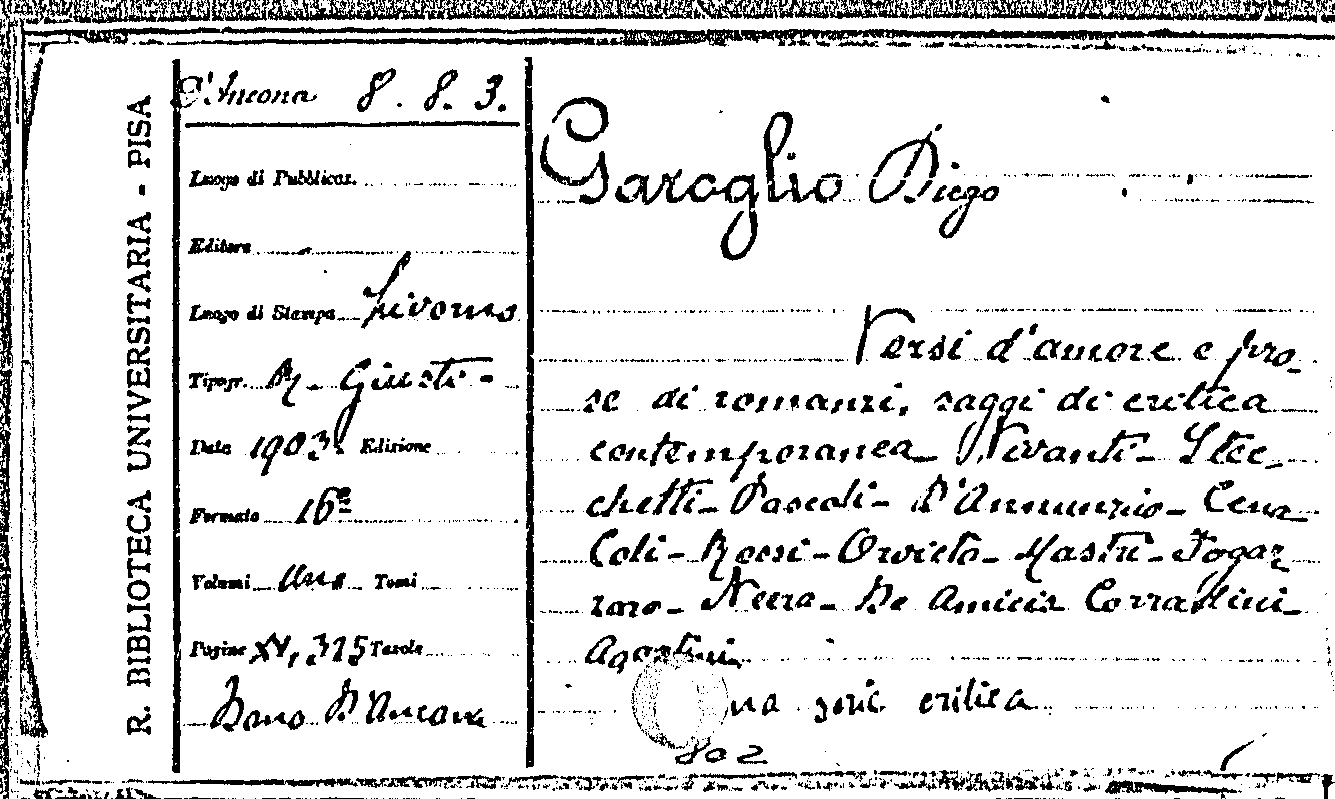 R. BIBLIOTECA UNIVERSITARIA - PISA
D'Ancona 8. 8. 3.
Luogo di Pubblicaz.
Editore
Luogo di Stampa Livorno
Tipogr. R. Giusti -
Data 1903. Edizione
Formato 16º
Volumi Uno Tomi
Pagine XV, 315 Tavole
Dono D'Ancona
Garoglio Diego
Versi d'amore e pro-
se di romanzi, saggi di critica
contemporanea - Vivanti - Stec-
chetti - Pascoli - D'Annunzio - Cena
Coli - Rossi - Orvieto - Mastri - Fogaz
zaro - Neera - De Amicis Corradini -
Agostini
na serie critica
802